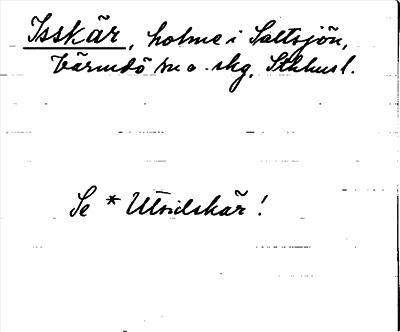 Isskär, holme i Saltsjön,
Värmdö sn o. skg, Sthlms l.
Se * Utvidskär!